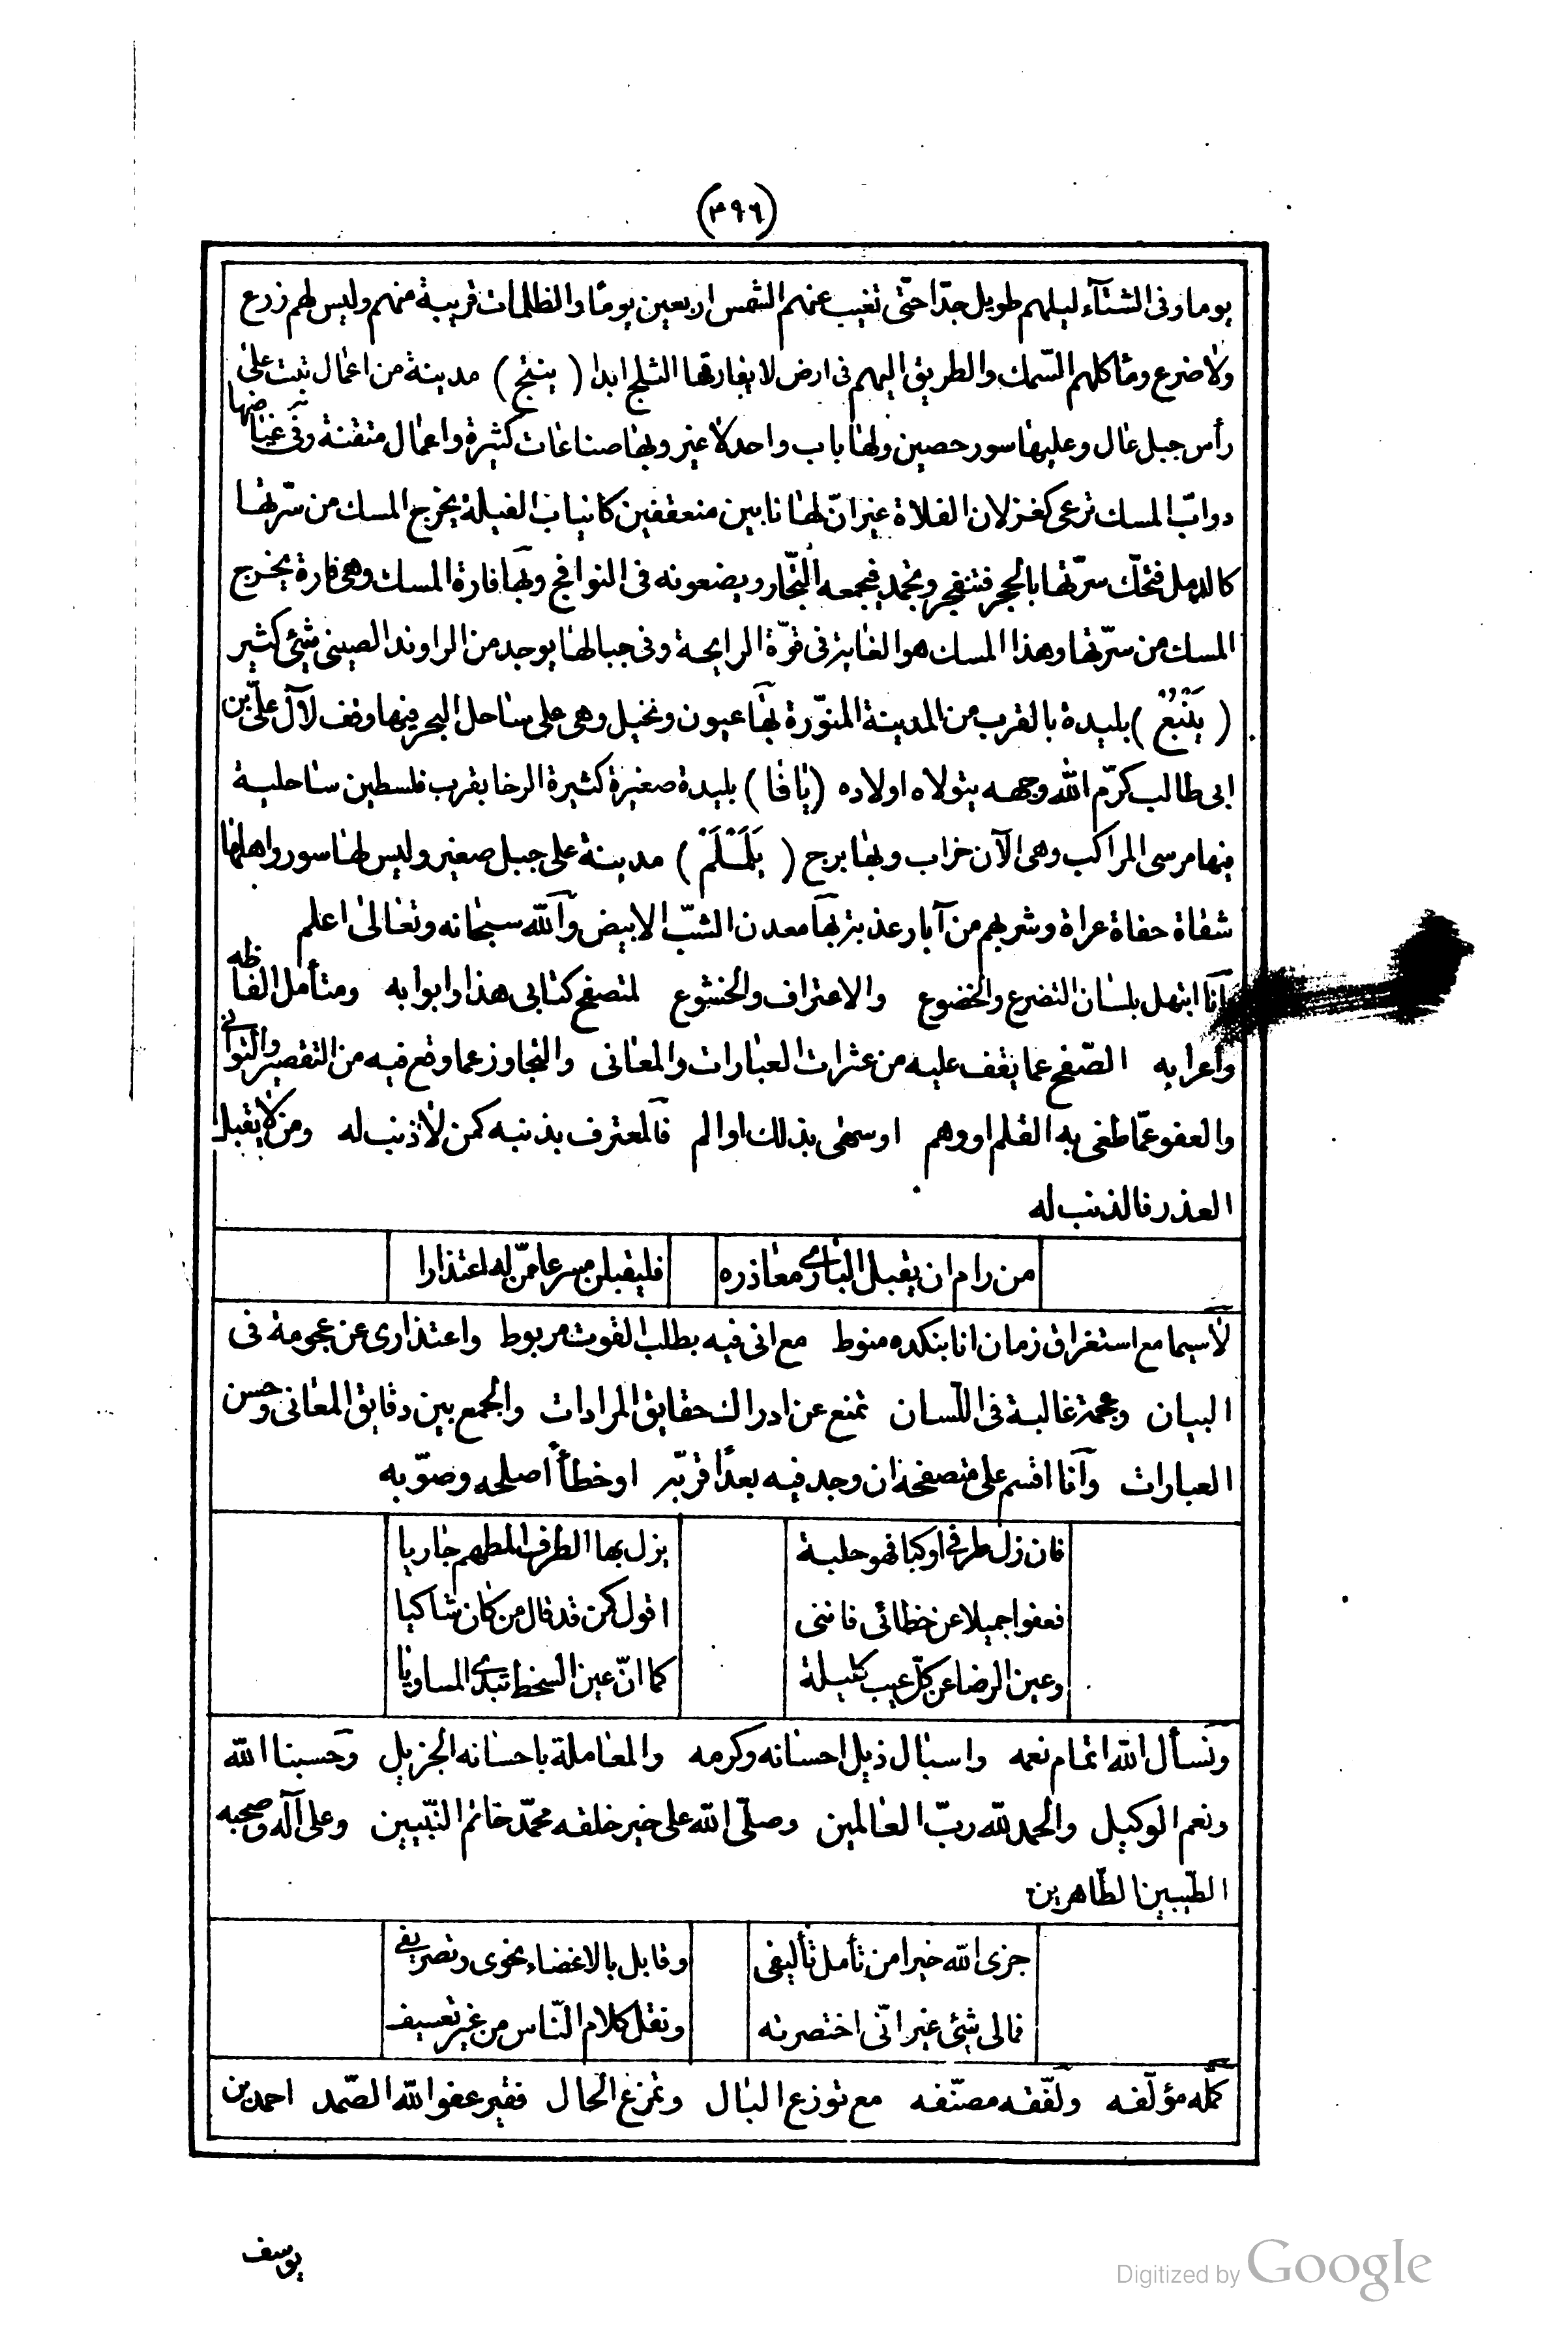 (٣٩٦)
يوما وفى الشتآء ليلهم طويل جدّا حتّى تغيب عنهم الشمس اربعين يومًا والظلمات قريبة منهم وليس لهم زرع
ولا ضرع وماكلهم السّمك والطريق اليهم فى ارض لا يفارقها الثلج ابدا ( ينبتج ) مدينة من اعمال تبت على
رأس جبل عال وعليها سور حصين ولها باب واحد لا غير وبها صناعات كثيرة واعمال متقنة وفى غياضها
دوابّ المسك ترعى كغزلان الفلاة غير انّ لها نابين منعقفين كانياب الفيلة يخرج المسك من سرّتها
كالدمل فتحكّ سرّتها بالحجر فتنفجر ويجمد فيجمعه التّجار ويضعونه فى النوافج وبها فارة المسك وهى فارة يخرج
المسك من سرّتها وهذا المسك هو الغاية فى قوّة الرايحة وفى جبالها يوجد من الراوند الصينى شئ كثير
( يَنْبُعْ ) بليدة بالقرب من المدينة المنوّرة بها عيون ونخيل وهى على ساحل البحر فيها وقف لآل علىّ بن
ابى طالب كرّم الله وجهه يتولاه اولاده (يافا) بليدة صغيرة كثيرة الرخا بقرب فلسطين ساحلية
فيها مرسى المراكب وهى الآن خراب وبها برج ( يَلَمْلَمْ ) مدينة على جبل صغير وليس لها سور واهلها
شقاة حفاة عراة وشربهم من آبار عذبة بها معدن الشبّ الابيض والله سبحانه وتعالى اعلم
وانا ابتهل بلسان التضرع والخضوع والاعتراف والخشوع لمتصفح كتابى هذا وابوابه ومتأمل الفاظه
واعرابه الصّفح عما يقف عليه من عثرات العبارات والمعانى والتجاوز عما وقع فيه من التقصير والتوانى
والعفو عمّا طغى به القلم او وهم او سهى بذلك او الم فالمعترف بذنبه كمن لا ذنب له ومن لا يقبل
العذر فالذنب له
من رام ان يقبل البارى معاذره فليقبلن مسرعا من له اعتذارا
لا سيما مع استغراق زمان انا بنكده منوط مع انى فيه بطلب القوت مربوط واعتذارى عن عجومة فى
البيان وعجمة غالبة فى اللّسان تمنع عن ادراك حقايق المرادات والجمع بين دقايق المعانى وحسن
العبارات وانا اقسم على متصفحه ان وجد فيه بعدًا قربّه او خطأً اصلحه وصوّبه
فان زل طرفى او كبا فهو حلبة يزل بها الطرف المطهم جاريا
فعفوا جميلا عن خطائى فاننى اقول كمن قد قال من كان شاكيا
وعين الرضا عن كلّ عيب كليلة كما انّ عين السخط تبدى المساويا
ونسأل الله اتمام نعمه واسبال ذيل احسانه وكرمه والمعاملة باحسانه الجزيل وحسبنا الله
ونعم الوكيل والحمد لله ربّ العالمين وصلّى الله على خير خلقه محمّد خاتم النبّيين وعلى آله وصحبه
الطّيبين الطّاهرين
جزى الله خيرا من تأمل تأليفى وقابل بالاغضاء نحوى وتصريفى
فمالى شئ غير انّى اختصرته ونقل كلام النّاس من غير تعسيف
كمّله مؤلّفه ولفّقه مصنّفه مع توزع البال وتمزغ الحال فقير عفو الله الصّمد احمد بن
يوسف
Digitized by Google